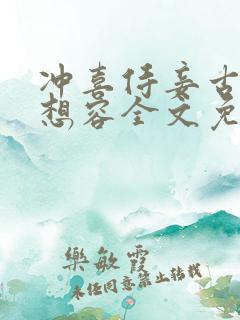 冲喜侍妾古
想容全文免
樂敏霞
未经同意禁止转载